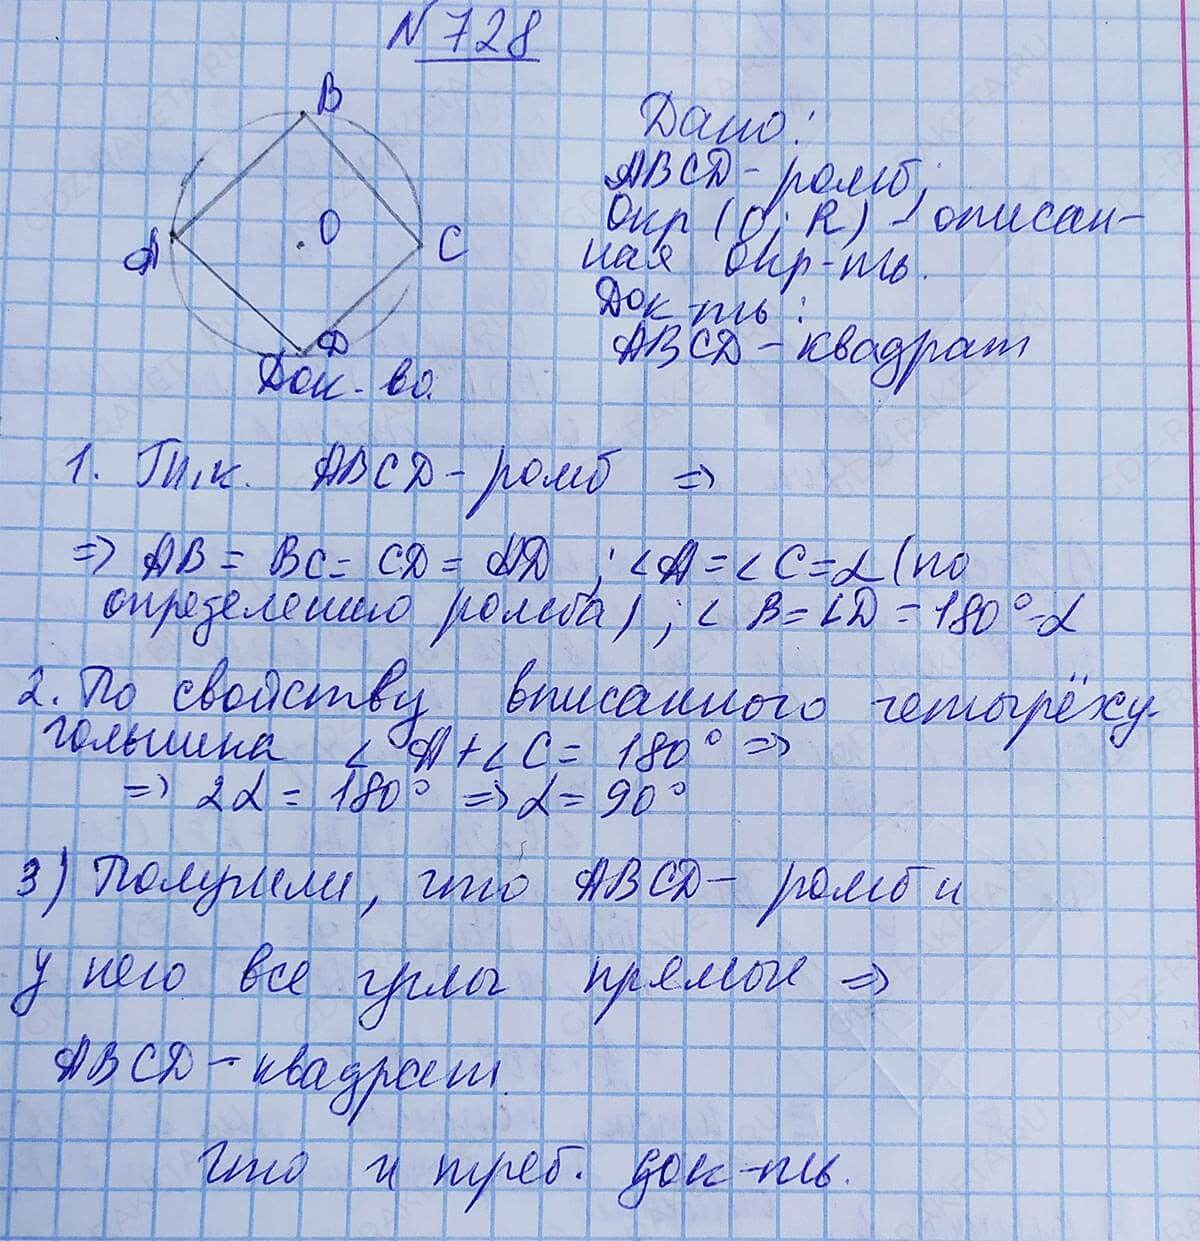 N 728
B
A
O
C
D
Дано:
ABCD - ромб;
Окр (O; R) - описан-
ная окр-ть.
Док-ть:
ABCD - квадрат
Док-во.
1. Т.к. ABCD - ромб =>
=> AB = BC = CD = AD ; ∠A = ∠C = α (по
определению ромба) ; ∠B = ∠D = 180° - α
2. По свойству вписанного четырёху-
гольника ∠A + ∠C = 180° =>
=> 2α = 180° => α = 90°
3) Получили, что ABCD - ромб и
у него все углы прямые =>
ABCD - квадрат.
Что и треб. док-ть.